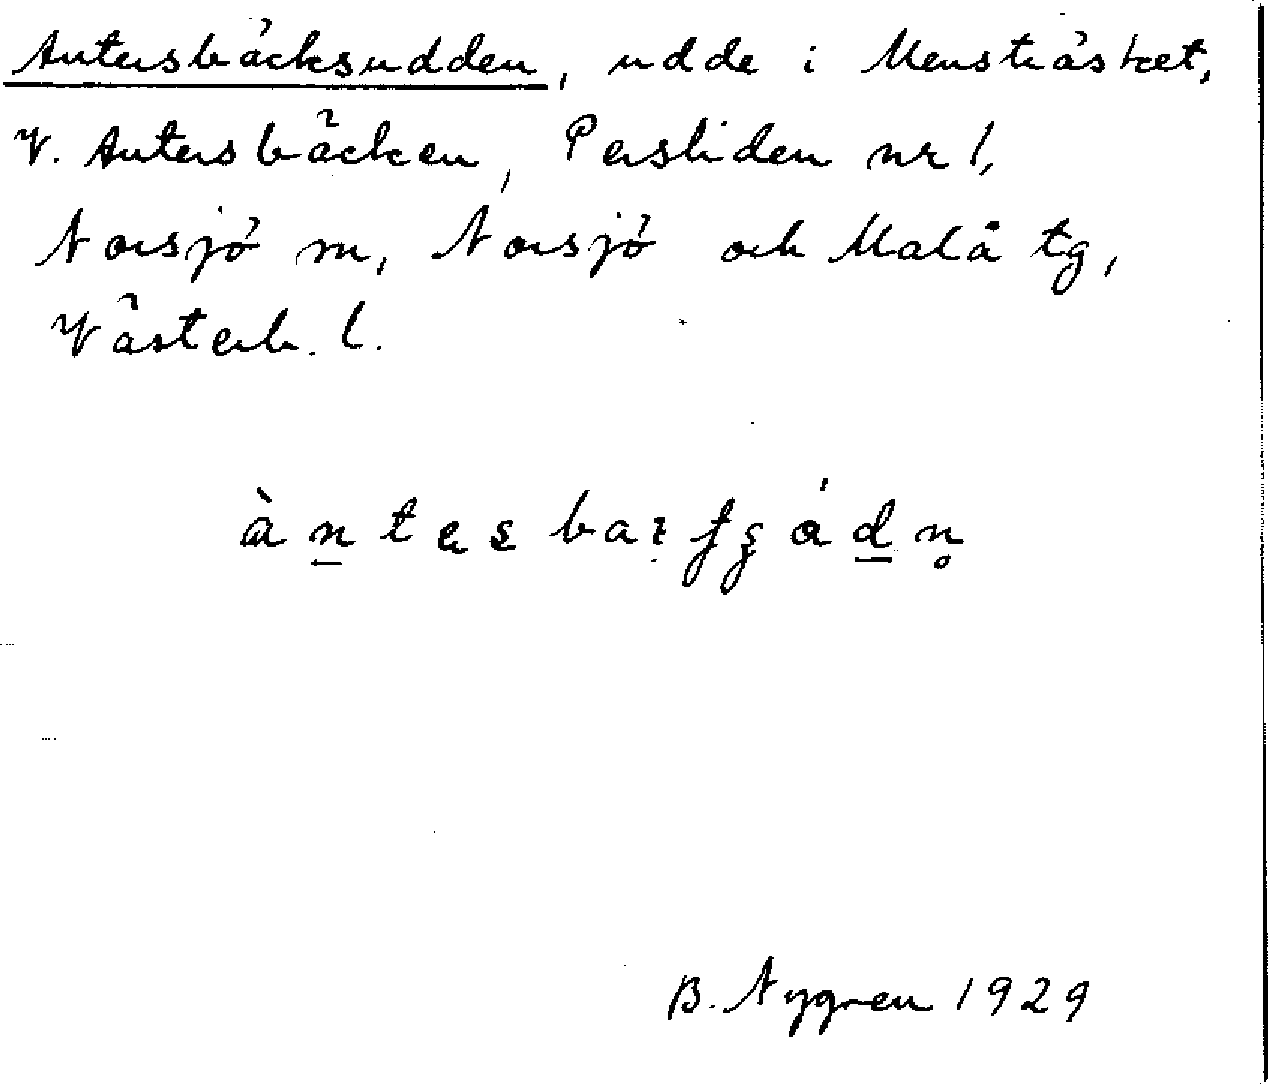 Antersbäcksudden, udde i Mensträsket,
V. Antersbäcken, Persliden nr 1,
Norsjö sn, Norsjö och Malå tg,
Västerb. l.
B. Nygren 1929